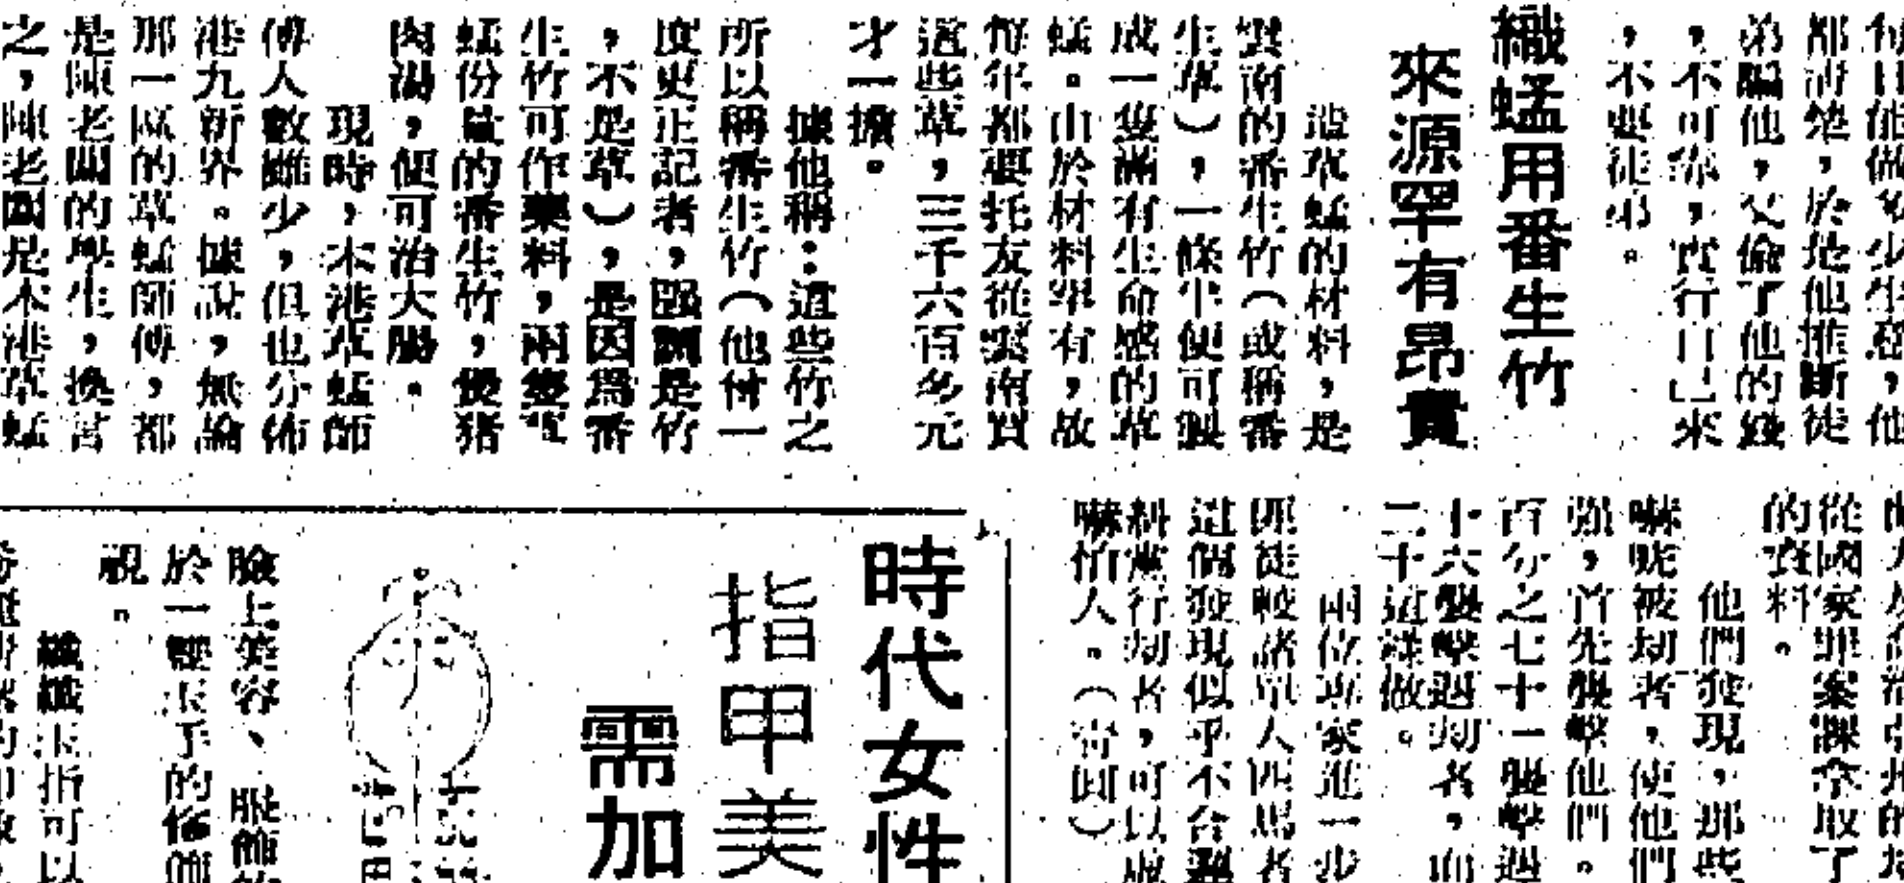 都清楚，於是他推斷徒
弟騙他，又偷了他的錢
，不可靠，實行自己來
，不要徒弟。
織蜢用番生竹
來源罕有昂貴
造草蜢的材料，是
雲南的番生竹（或稱番
生草），一條半便可製
成一隻滿有生命感的草
蜢。由於材料罕有，故
每年都要托友從雲南買
這些草，三千六百多元
才一擔。
據他稱：這些竹之
所以稱番生竹（他付一
度更正記者，強調是竹
，不是草），是因爲番
生竹可作藥料，兩隻草
蜢份量的番生竹，煲猪
肉湯，便可治大腸。
現時，本港草蜢師
傅人數雖少，但也分佈
港九新界。據說，無論
那一區的草蜢師傅，都
是陳老闆的學生，換言
之，陳老闆是本港草蜢
從國家罪案課索取了
的資料。
他們發現，那些
嚇唬被刧者，使他們
強，首先襲擊他們。
百分之七十一襲擊過
十六襲擊過刧者，而
二十這樣做。
兩位專家進一步
匪徒較諸單人匹馬者
這個發現似乎不合邏
料黨行刧者，可以虛
嚇怕人。（寄園）
時代女性
指甲美
需加
臉上笑容、服飾
於一雙玉手的修飾
視。
纖纖玉指可以